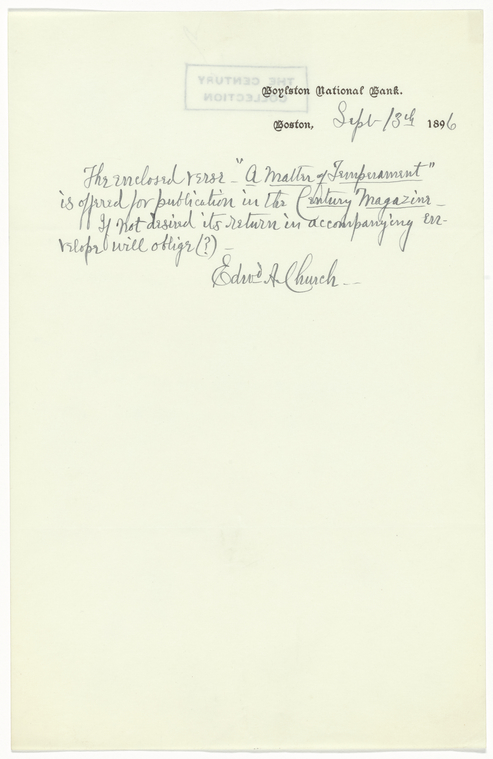 THE CENTURY
COLLECTION
Boylston National Bank.
Boston, Sept 13th 1896
The enclosed verse - "A Matter of Temperament"
is offered for publication in the Century Magazine -
If not desired its return in accompanying en-
velope will oblige (?) -
Edwd A. Church -